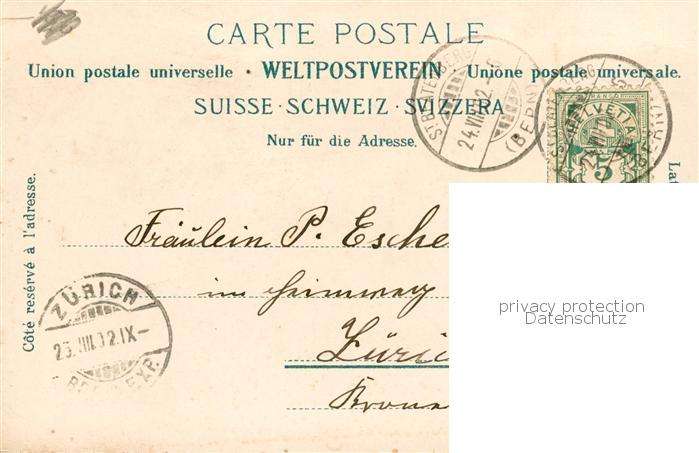 CARTE POSTALE
Union postale universelle · WELTPOSTVEREIN · Unione postale universale.
SUISSE · SCHWEIZ · SVIZZERA
Nur für die Adresse.
Côté reservé à l'adresse.
ST. BEATENBERG
24.VIII.02
(BERN)
HELVETIA
5
Fräulein P. Esche
im Heimweg
Züric
Krone
ZÜRICH
25.VIII.02.IX–
privacy protection
Datenschutz